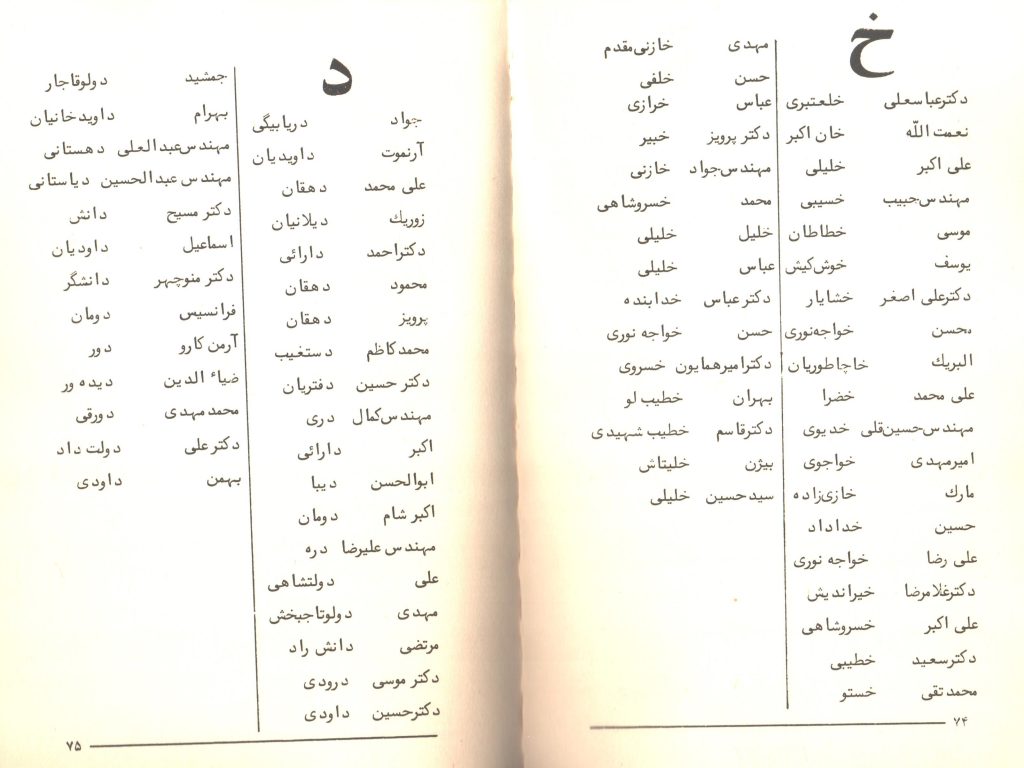 خ
دکترعباسعلی خلعتبری
نعمت اللّه خان اکبر
علی اکبر خلیلی
مهندس‌حبیب خسیبی
موسی خطاطان
یوسف خوش‌کیش
دکترعلی اصغر خشایار
محسن خواجه‌نوری
البریك خاچاطوریان
علی محمد خضرا
مهندس‌حسین‌قلی خدیوی
امیرمهدی خواجوی
مارك خازی‌زاده
حسین خداداد
علی رضا خواجه نوری
دکترغلامرضا خیراندیش
علی اکبر خسروشاهی
دکترسعید خطیبی
محمدتقی خستو
مهدی خازنی‌مقدم
حسن خلفی
عباس خرازی
دکتر پرویز خبیر
مهندس‌جواد خازنی
محمد خسروشاهی
خلیل خلیلی
عباس خلیلی
دکترعباس خدابنده
حسن خواجه نوری
دکترامیرهمایون خسروی
بهران خطیب لو
دکترقاسم خطیب شهیدی
بیژن خلیتاش
سیدحسین خلیلی
۷۴
د
جواد دریابیگی
آرنموت داویدیان
علی محمد دهقان
زوریك دیلانیان
دکتراحمد دارائی
محمود دهقان
پرویز دهقان
محمدکاظم دستغیب
دکتر حسین دفتریان
مهندس‌کمال دری
اکبر دارائی
ابوالحسن دیبا
اکبر شام دومان
مهندس علیرضا دره
علی دولتشاهی
مهدی دولوتاجبخش
مرتضی دانش راد
دکتر موسی درودی
دکترحسین داودی
جمشید دولوقاجار
بهرام داویدخانیان
مهندس‌عبدالعلی دهستانی
مهندس عبدالحسین دیاستانی
دکتر مسیح دانش
اسماعیل داودیان
دکتر منوچهر دانشگر
فرانسیس دومان
آرمن کارو دور
ضیاء الدین دیده ور
محمدمهدی دورقی
دکترعلی دولت داد
بهمن داودی
۷۵